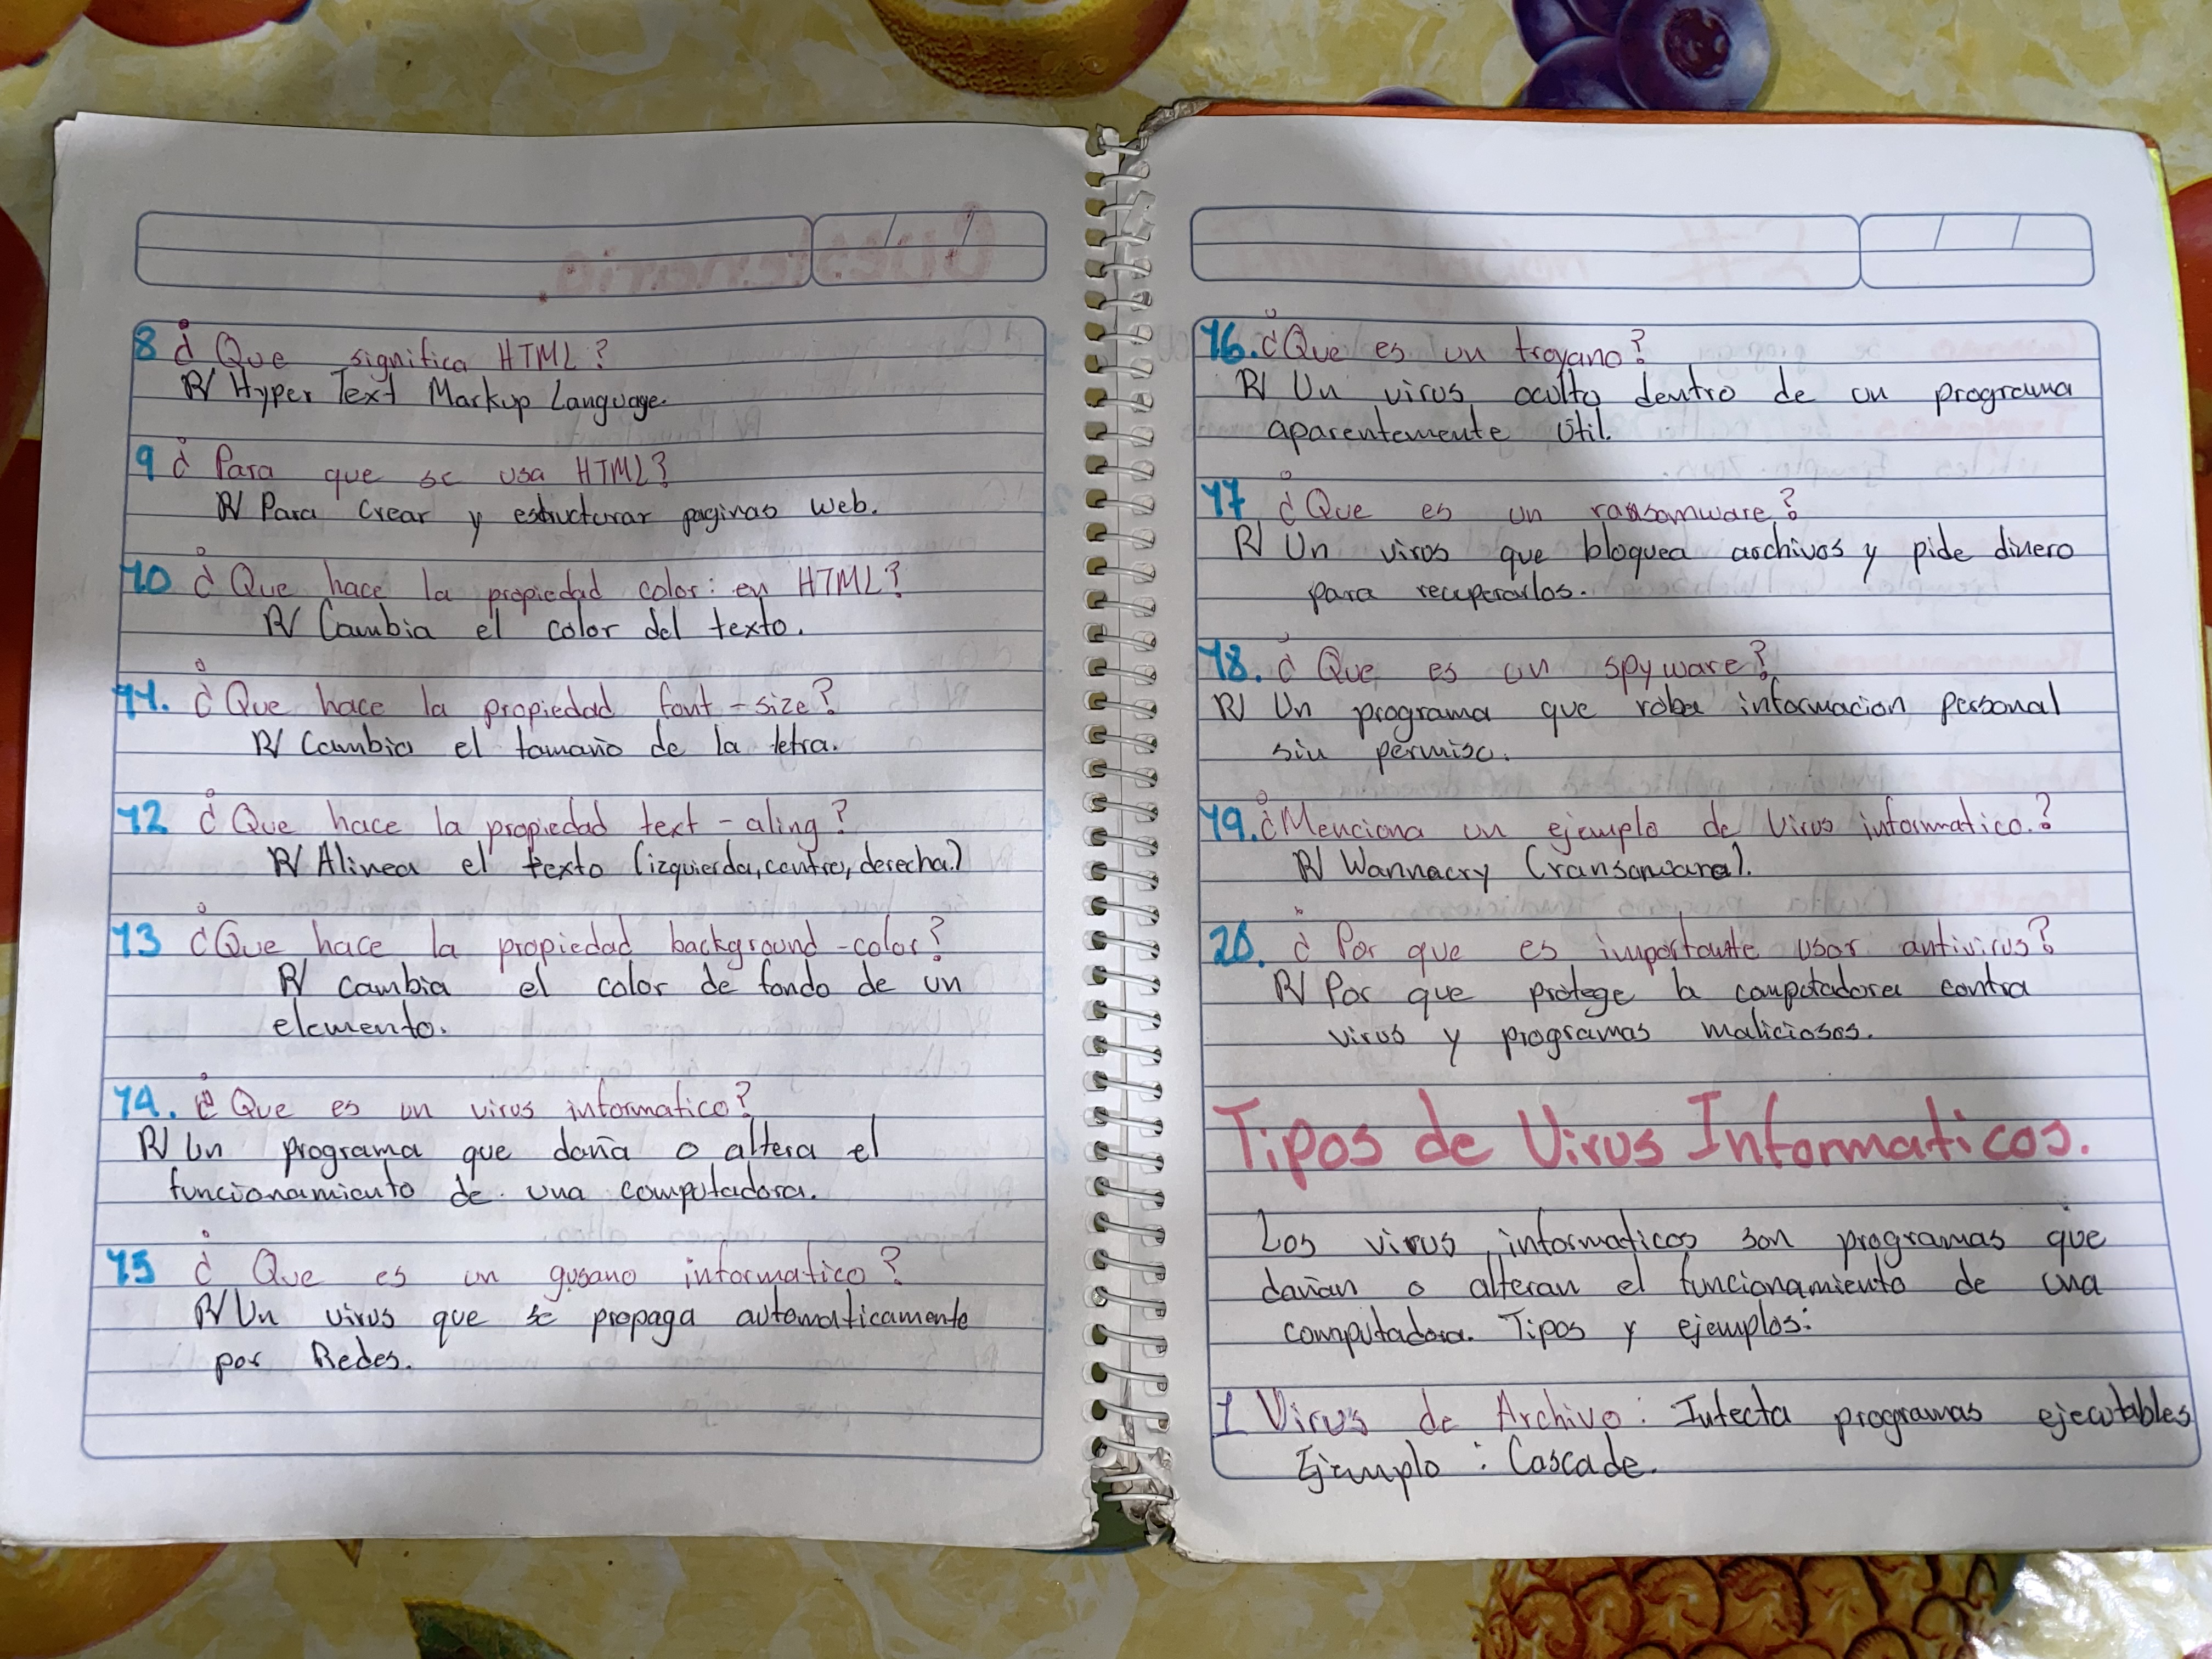 8 ¿Que significa HTML?
R/ Hyper Text Markup Language.
9 ¿Para que se usa HTML?
R/ Para Crear y estructurar paginas web.
10 ¿Que hace la propiedad color: en HTML?
R/ Cambia el color del texto.
11. ¿Que hace la propiedad font-size?
R/ Cambia el tamaño de la letra.
12 ¿Que hace la propiedad text-aling?
R/ Alinea el texto (izquierda, centro, derecha.)
13 ¿Que hace la propiedad background-color?
R/ cambia el color de fondo de un
elemento.
14. ¿Que es un virus informatico?
R/ Un programa que daña o altera el
funcionamiento de una computadora.
15 ¿Que es un gusano informatico?
R/ Un virus que se propaga automaticamente
por Redes.
16. ¿Que es un troyano?
R/ Un virus oculto dentro de un programa
aparentemente útil.
17 ¿Que es un ransomware?
R/ Un virus que bloquea archivos y pide dinero
para recuperarlos.
18. ¿Que es un spyware?
R/ Un programa que roba informacion personal
sin permiso.
19. ¿Menciona un ejemplo de Virus informatico.?
R/ Wannacry (ransomware).
20. ¿Por que es importante usar antivirus?
R/ Por que protege la computadora contra
virus y programas maliciosos.
Tipos de Virus Informaticos.
Los virus informaticos son programas que
dañan o alteran el funcionamiento de una
computadora. Tipos y ejemplos:
1 Virus de Archivo: Infecta programas ejecutables
Ejemplo: Cascade.